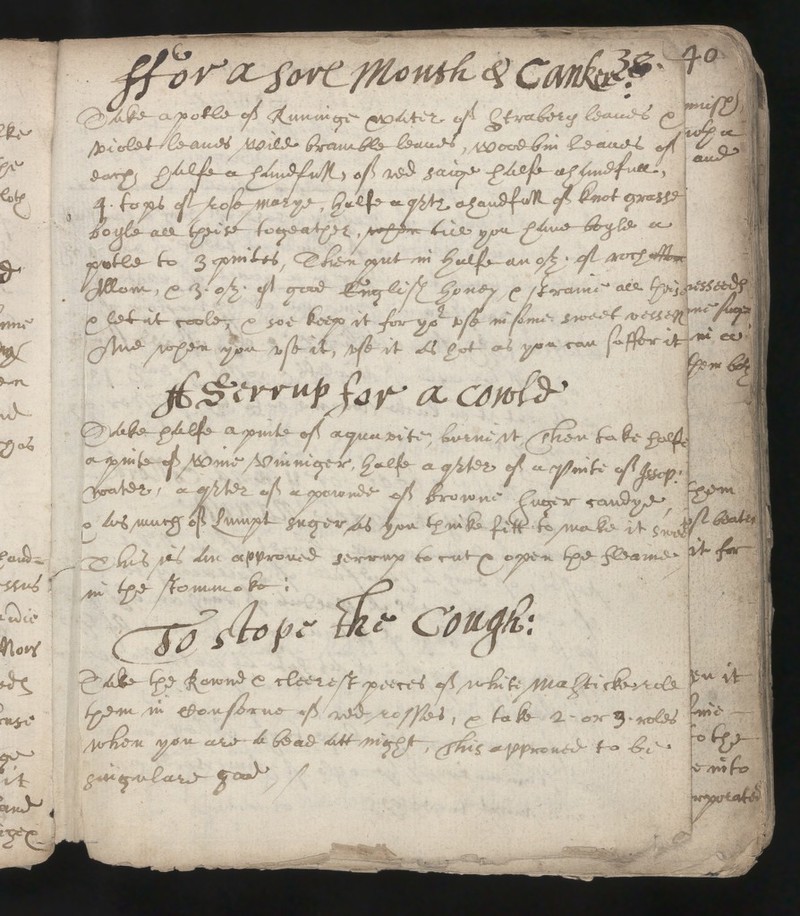 38. 40
ffor a sore Mouth & Canker:
Take a potle of Runinge water of Strabery leaves &
violet leaves wild bramble leaves, woodbin leaves of
each halfe a handfull, of red saige halfe a handfull,
4. tops of rose marye, halfe a qrtr a handfull of knot grasse
boyle all theise togeather, when till you have boyle a
potle to 3 pintes, Then put in halfe an oz. of roch
Allom, & 3. oz. of good English honey & straine all theise
& let it coole, & soe keep it for yor vse in some sweet vessell
And when you vse it, vse it as hot as you can suffer it
A Serrup for a Cowld
Take halfe a pinte of aquavite, burne it, Then take halfe
a pinte of wine vinniger, halfe a qrter of a Pinte of Isop:
water, a qrter of a pownde of browne suger candye,
& as much of Lumpt suger as you thinke fitt to make it sweet
This is an approved serrup to cut & open the fleame
in the stommake:
To stope the Cough:
Take the Rownd & cleerest peeces of white Masticke role
them in Conserve of red rosses, & take 2. or 3. roles
when you are a bead att night, This approved to be
singulare good,
and
in a
them
it for
en it
to the
into